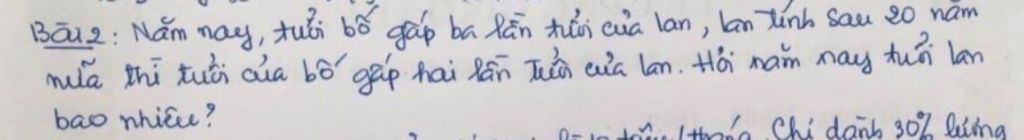 Bài 2: Năm nay, tuổi bố gấp ba lần tuổi của lan, lan tính sau 20 năm
nữa thì tuổi của bố gấp hai lần tuổi của lan. Hỏi năm nay tuổi lan
bao nhiêu?
Chị dành 30% lương